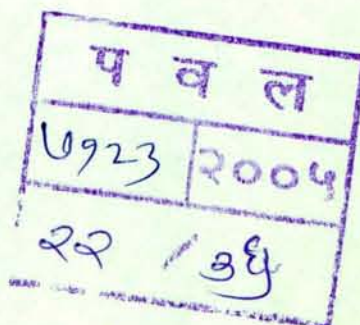 प व ल
७९२३ २००५
२२ / ३६